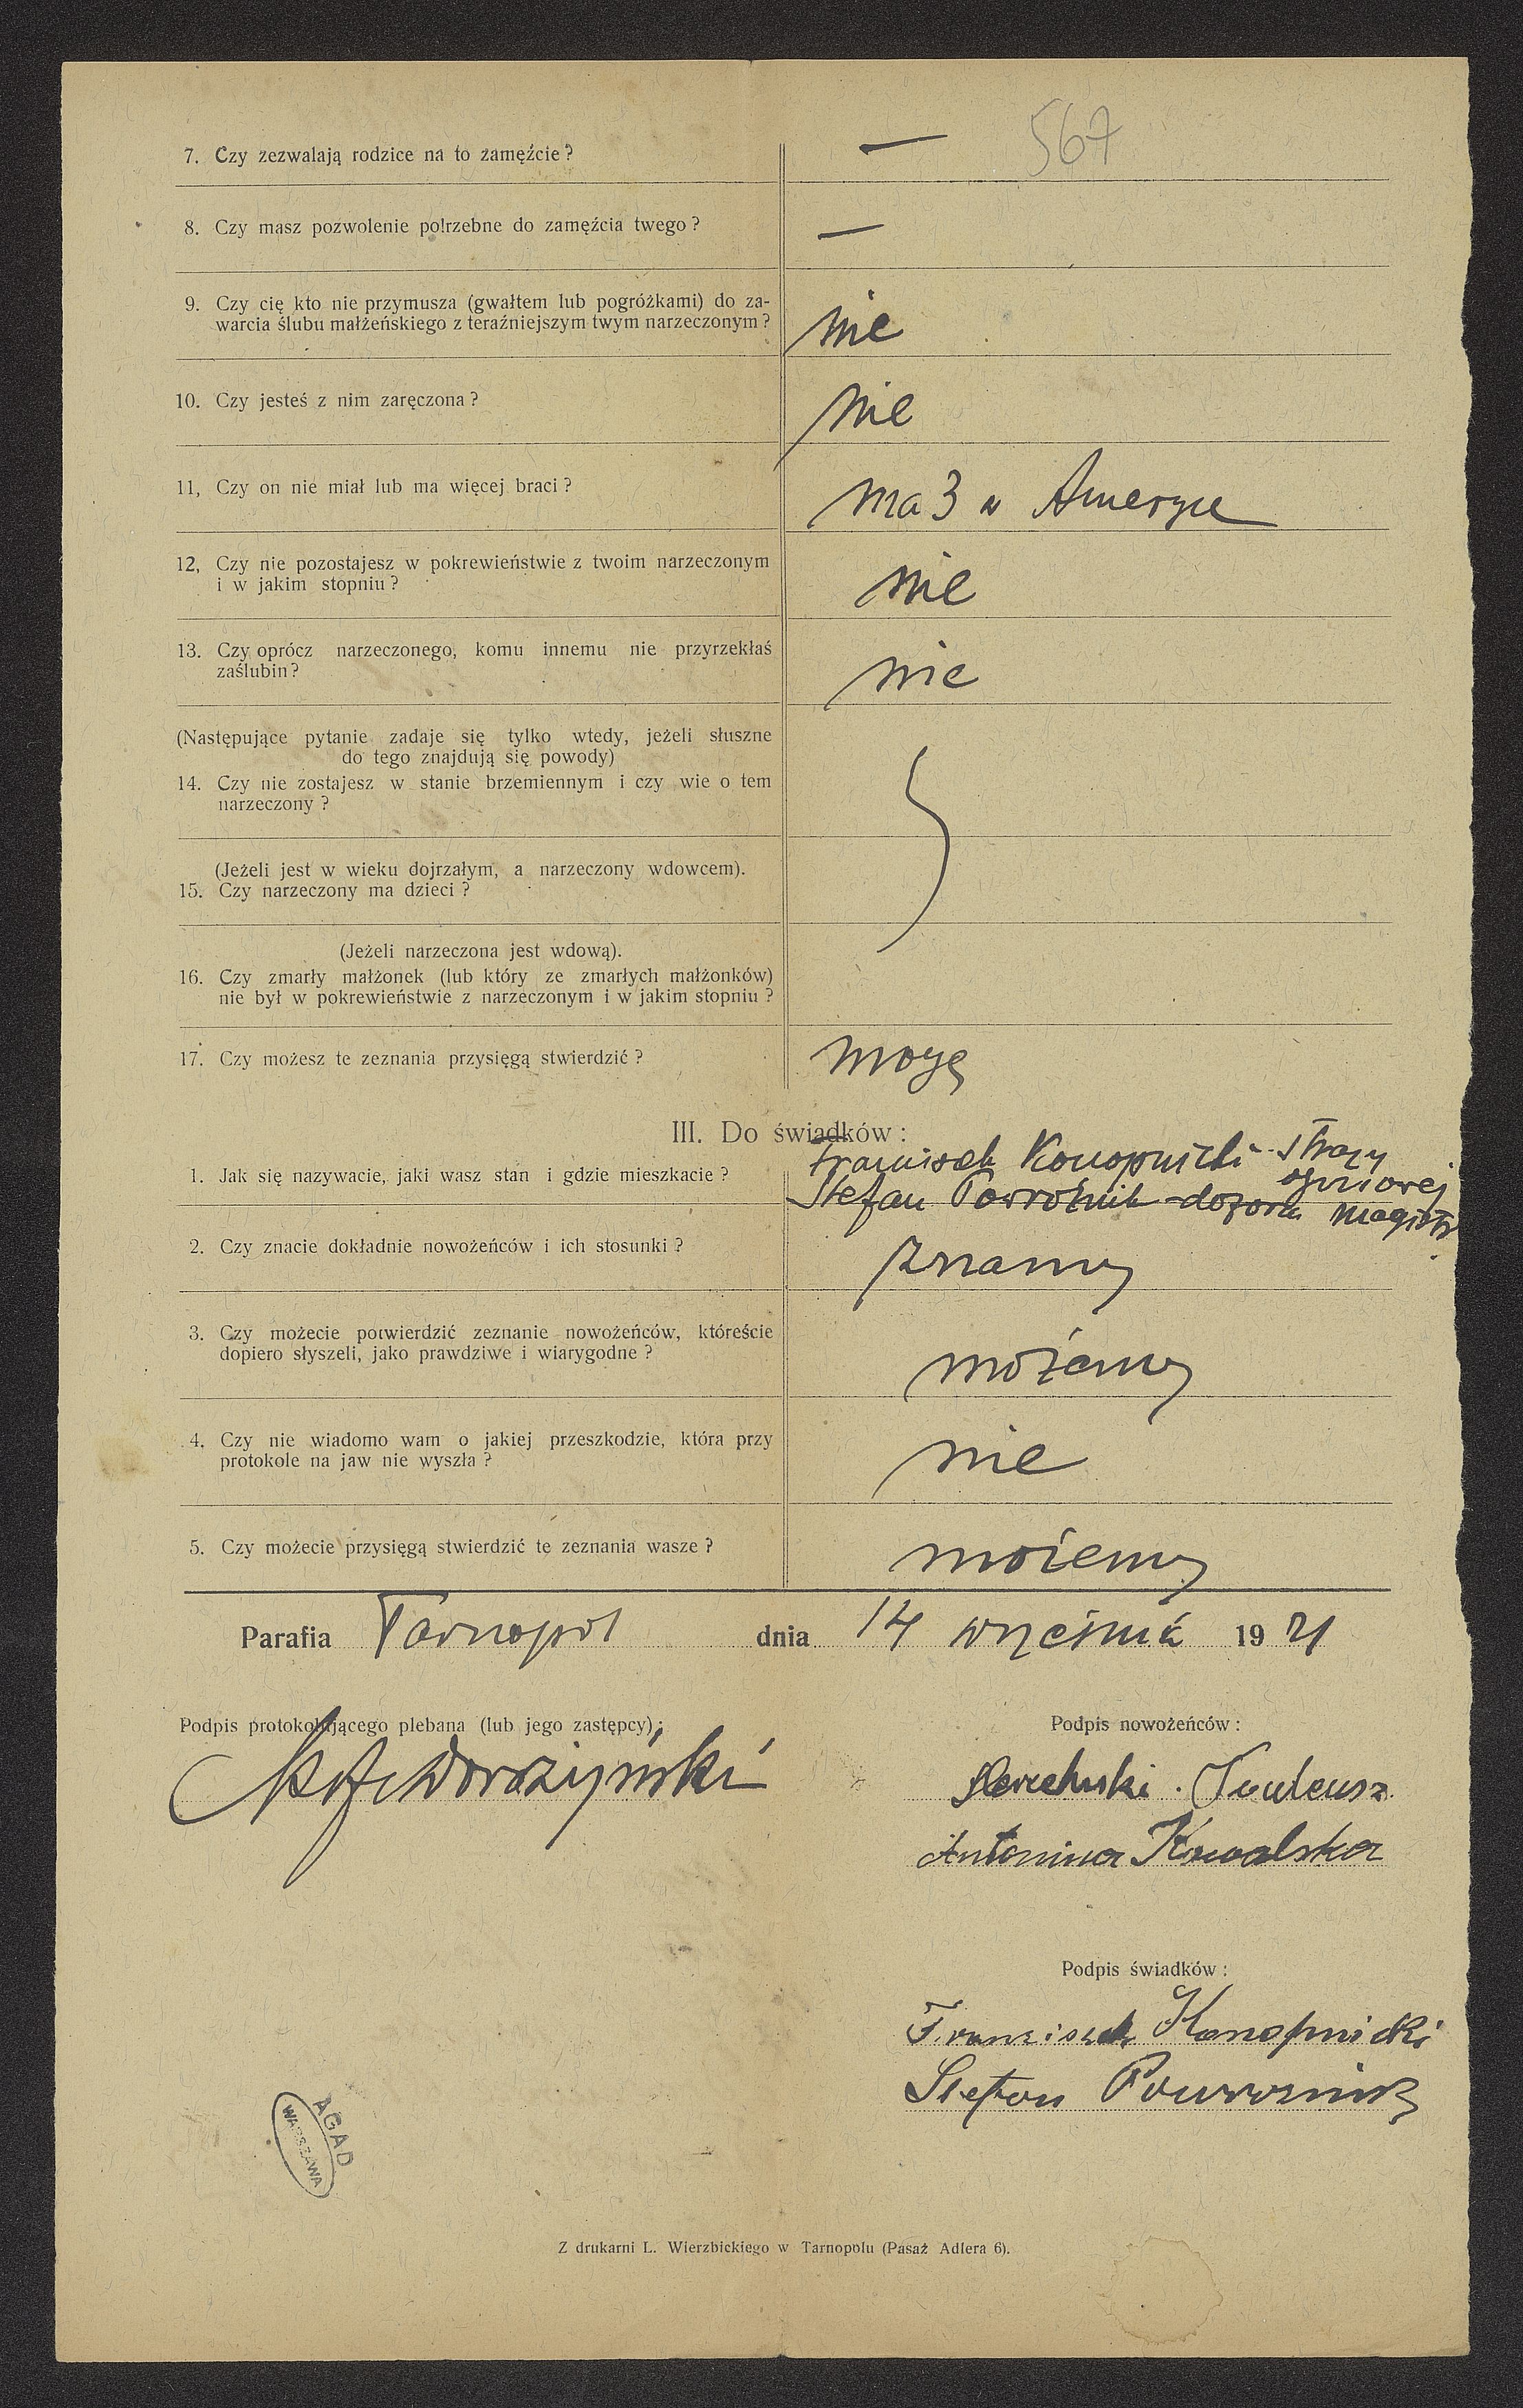 567
7. Czy zezwalają rodzice na to zamęźcie ? —
8. Czy masz pozwolenie potrzebne do zamęźcia twego ? —
9. Czy cię kto nie przymusza (gwałtem lub pogróżkami) do za-
warcia ślubu małżeńskiego z teraźniejszym twym narzeczonym ? nie
10. Czy jesteś z nim zaręczona ? nie
11, Czy on nie miał lub ma więcej braci ? ma 3 w Ameryce
12, Czy nie pozostajesz w pokrewieństwie z twoim narzeczonym
i w jakim stopniu ? nie
13. Czy oprócz narzeczonego, komu innemu nie przyrzekłaś
zaślubin ? nie
(Następujące pytanie zadaje się tylko wtedy, jeżeli słuszne
do tego znajdują się powody)
14. Czy nie zostajesz w stanie brzemiennym i czy wie o tem
narzeczony ?
(Jeżeli jest w wieku dojrzałym, a narzeczony wdowcem).
15. Czy narzeczony ma dzieci ?
(Jeżeli narzeczona jest wdową).
16. Czy zmarły małżonek (lub który ze zmarłych małżonków)
nie był w pokrewieństwie z narzeczonym i w jakim stopniu ?
17. Czy możesz te zeznania przysięgą stwierdzić ? mogę
III. Do świadków :
Franciszek Konopnicki - straży
ogniowej
1. Jak się nazywacie, jaki wasz stan i gdzie mieszkacie ?
Stefan Powroźnik - dozorca magistr
2. Czy znacie dokładnie nowożeńców i ich stosunki ? znamy
3. Czy możecie potwierdzić zeznanie nowożeńców, któreście
dopiero słyszeli, jako prawdziwe i wiarygodne ? możemy
4. Czy nie wiadomo wam o jakiej przeszkodzie, która przy
protokole na jaw nie wyszła ? nie
5. Czy możecie przysięgą stwierdzić te zeznania wasze ? możemy
Parafia Tarnopol dnia 14 września 1921
Podpis protokołującego plebana (lub jego zastępcy) :
Podpis nowożeńców :
Tadeusz
Antonina Kowalska
Podpis świadków :
Franciszek Konopnicki
Stefan Powroznik
AGAD
WARSZAWA
Z drukarni L. Wierzbickiego w Tarnopolu (Pasaż Adlera 6).